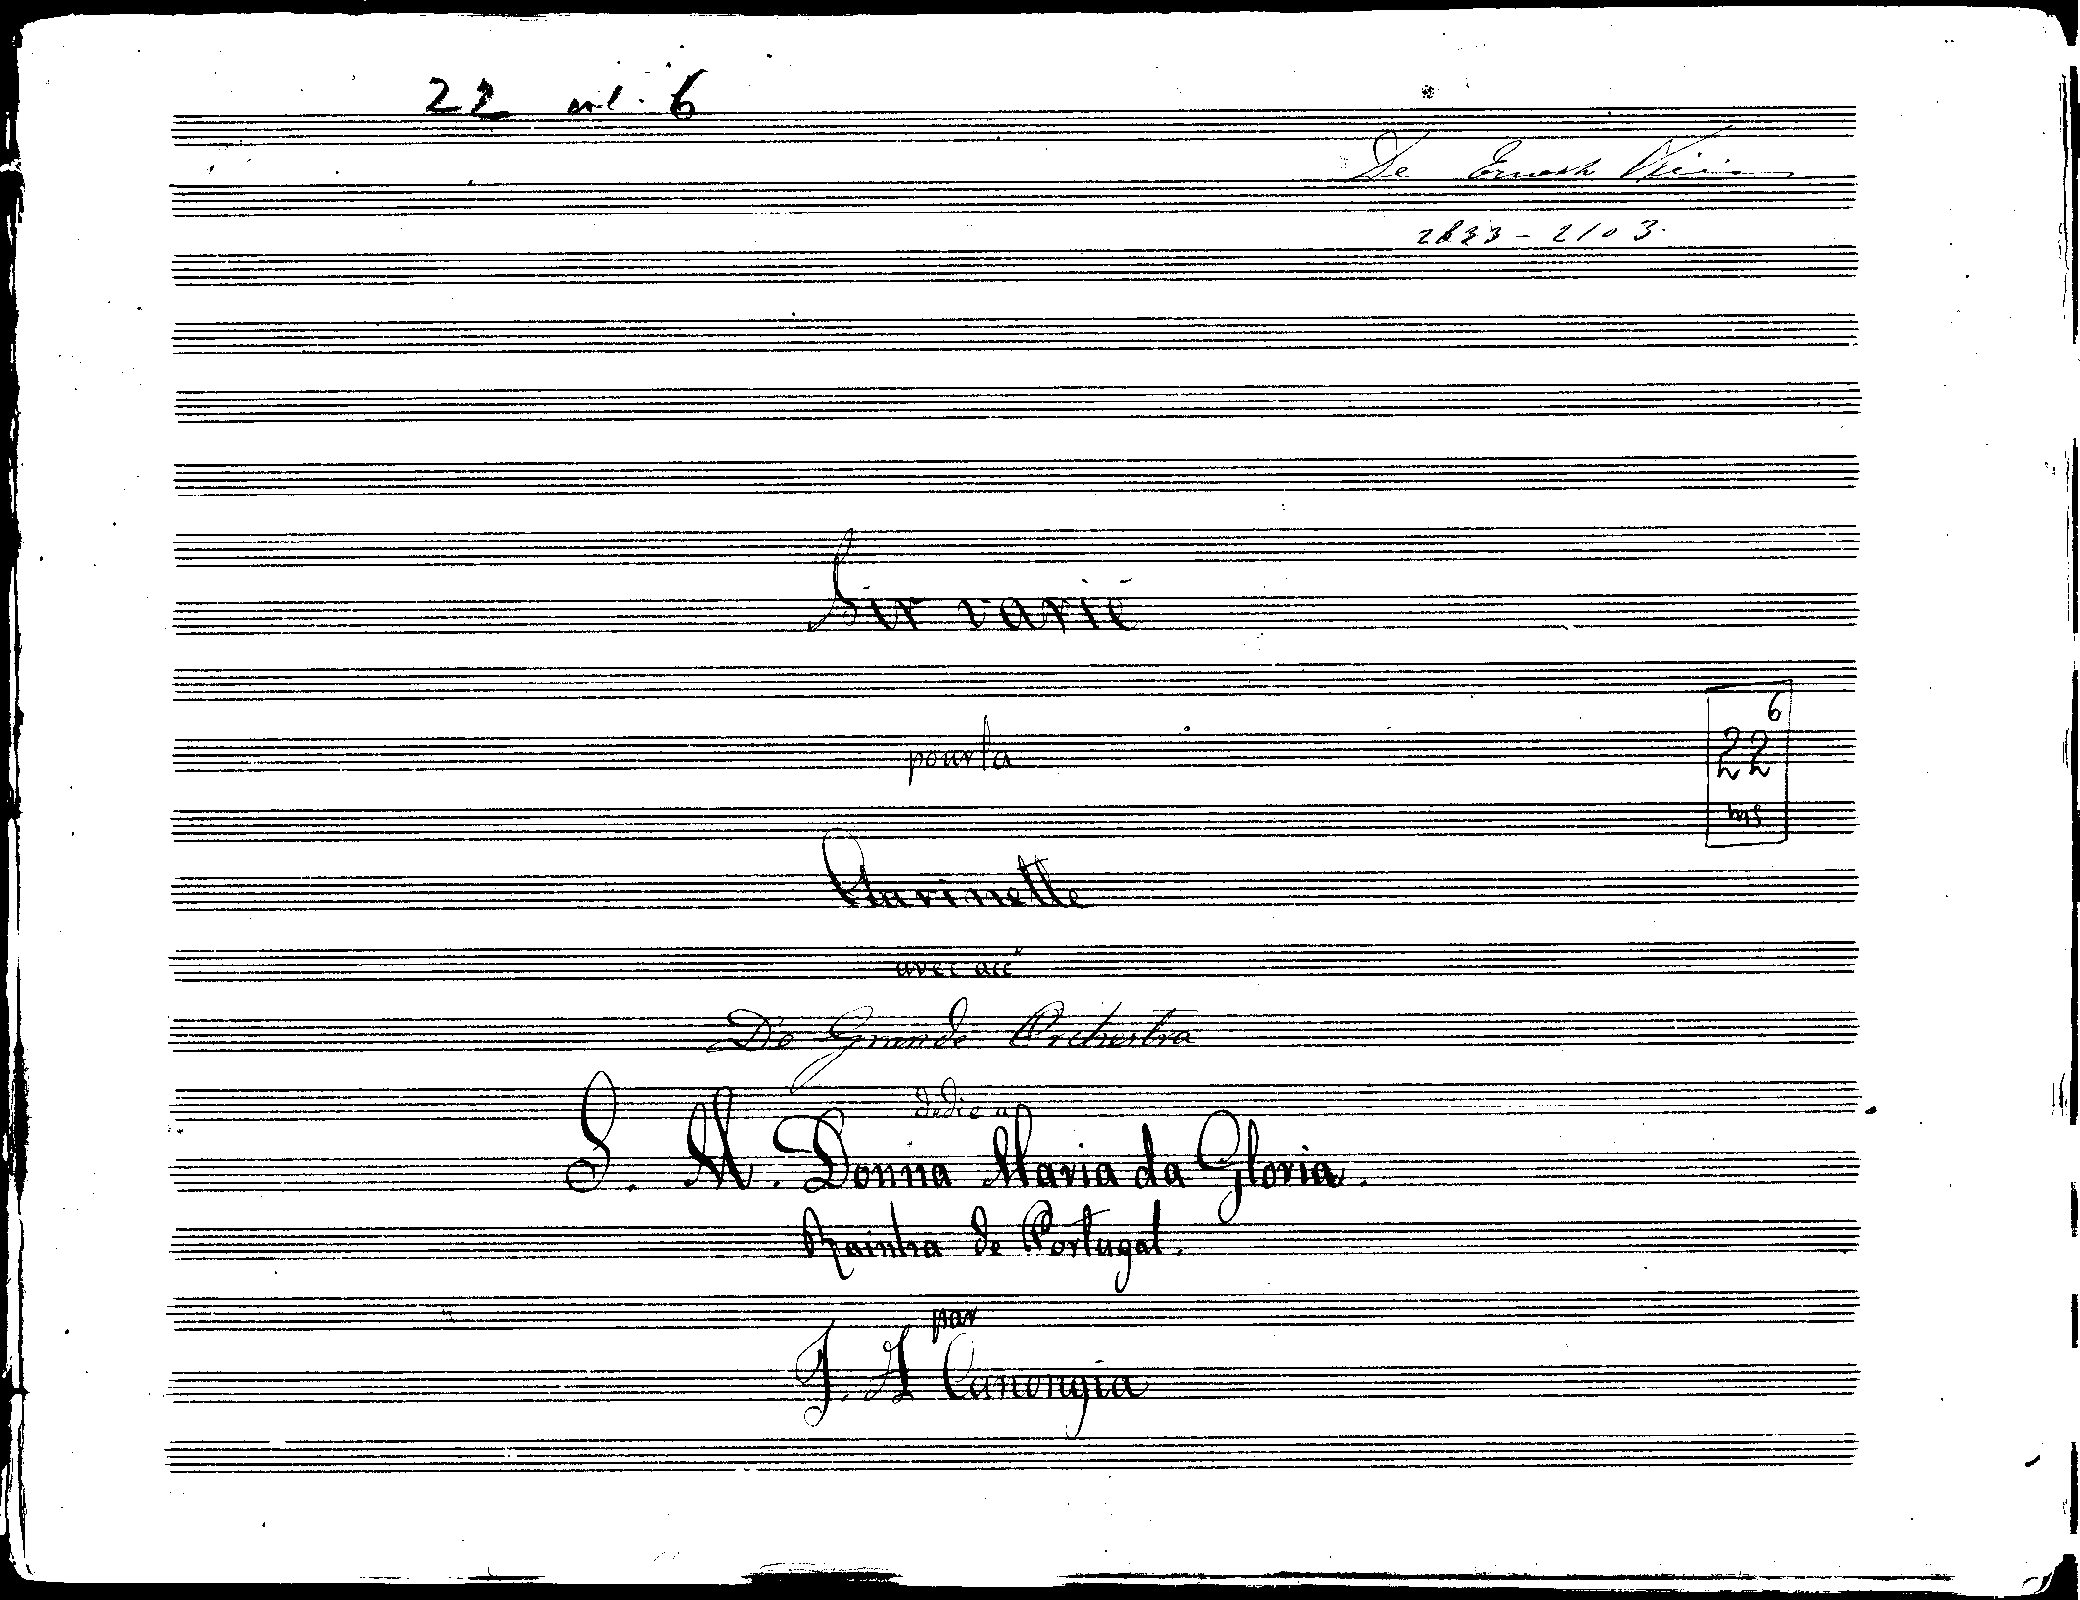 22 vol. 6
De Ernesto Vieira
2833 - 2103.
Air varié
pour la
6
22
ms
Clarinette
avec acc
De Grande Orchestra
dedié a
S. M. Donna Maria da Gloria.
Rainha de Portugal.
par
J. A Canongia